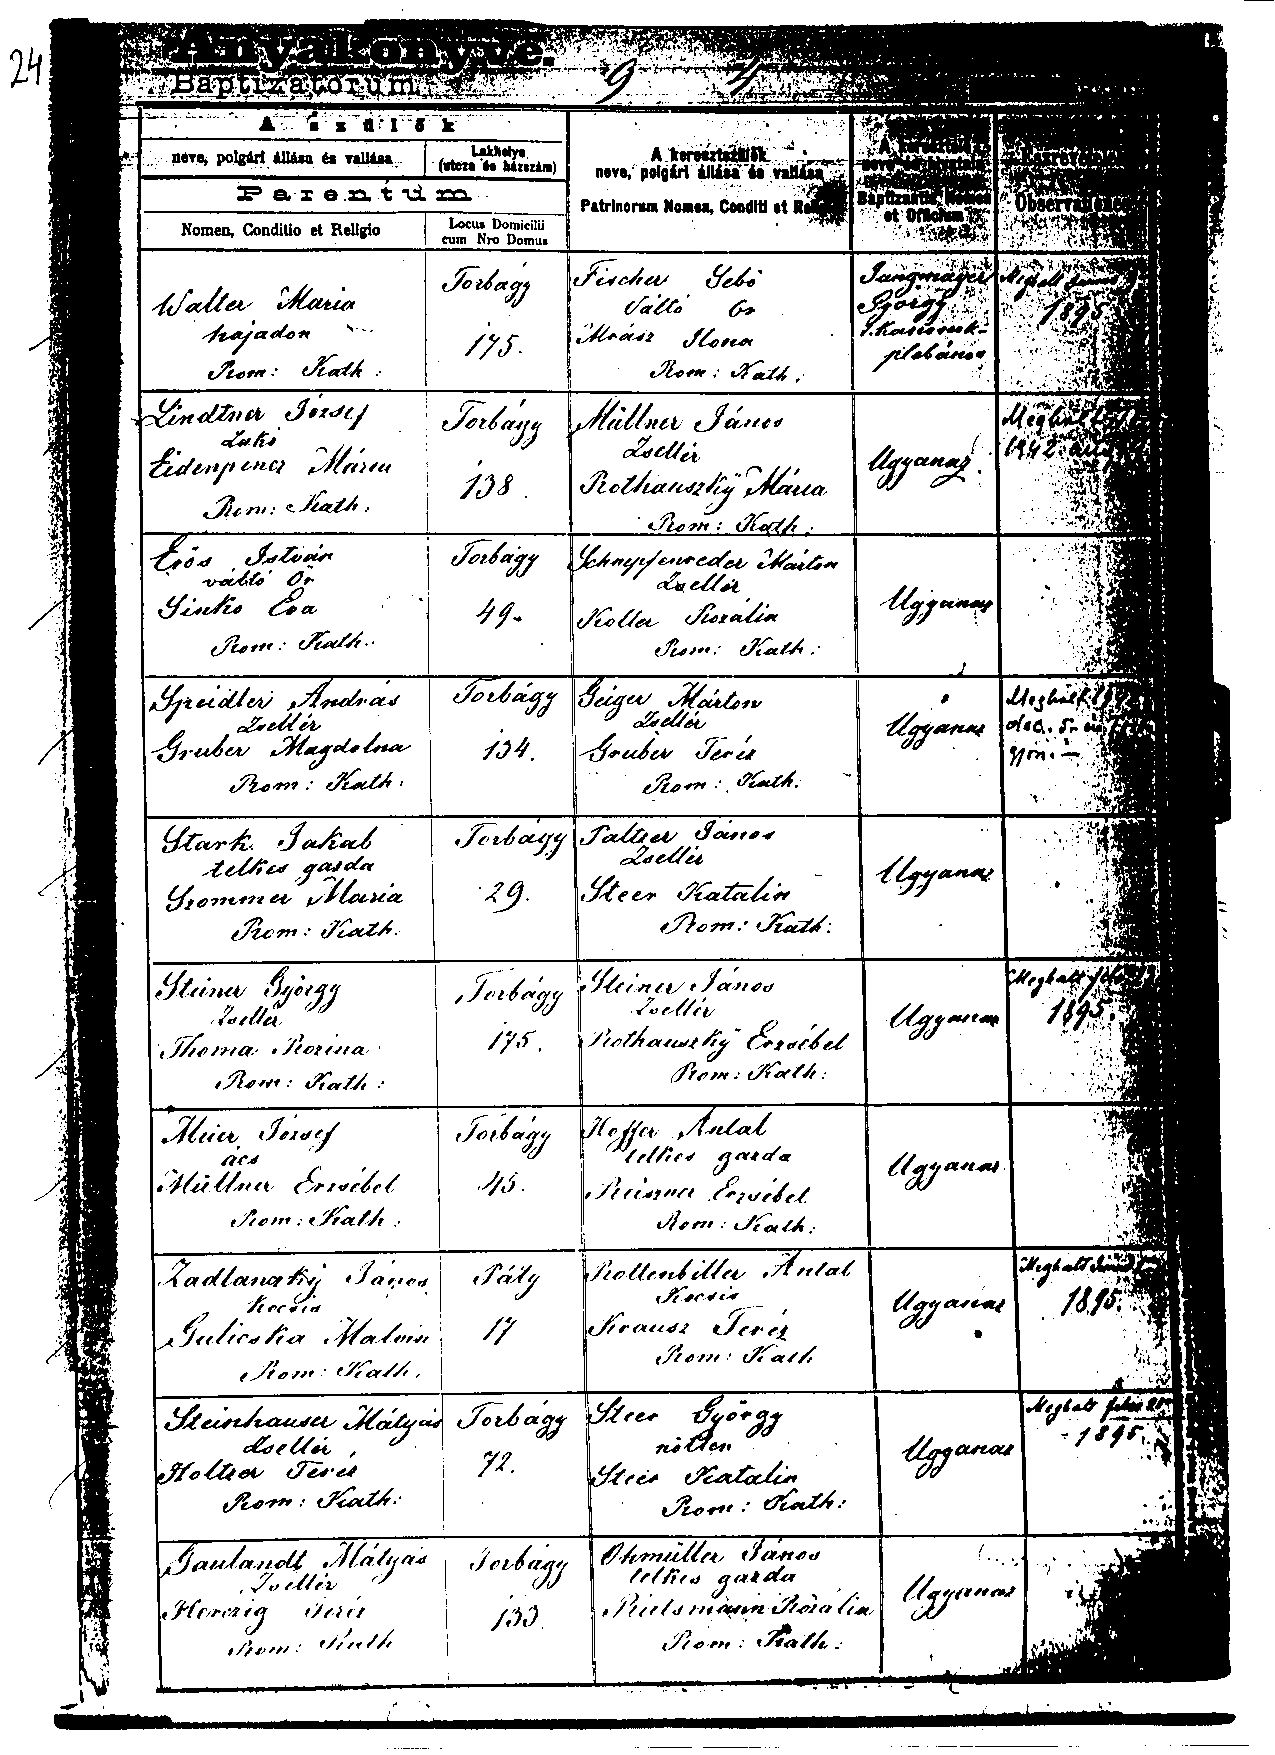 24
Anyakönyve.
Baptizatorum
9 4
A szülők
neve, polgári állása és vallása
Lakhelye
(utcza és házszám)
Parentum
Nomen, Conditio et Religio
Locus Domicilii
cum Nro Domus
A keresztszülők
neve, polgári állása és vallása
Patrinorum Nomen, Conditi et Religio
A keresztelő
Baptizantis Nomen
et Officium
Observationes
Walter Maria
hajadon
Rom: Kath:
Torbágy
175.
Fischer Sebő
Váltó őr
Mrász Ilona
Rom: Kath:
Jungmayer
György
plebános
Meghalt
1895
Lindtner József
Lakó
Eidenpencz Mária
Rom: Kath.
Torbágy
138.
Müllner János
Zsellér
Rothauszky Mária
Rom: Kath:
Ugyanaz
Meghalt
1942 aug
Erős István
váltó Őr
Sinko Éva
Rom: Kath:
Torbágy
49.
Schnepfenreder Márton
Zsellér
Koller Rozália
Rom: Kath:
Ugyanaz
Speidler András
Zsellér
Gruber Magdolna
Rom: Kath:
Torbágy
134.
Geiger Márton
Zsellér
Gruber Teréz
Rom: Kath:
Ugyanaz
Meghalt
dec. 5. én
Stark Jakab
telkes gazda
Sommer Maria
Rom: Kath:
Torbágy
29.
Paltzer János
Zsellér
Steer Katalin
Rom: Kath:
Ugyanaz
Steiner György
Zsellér
Thoma Rozina
Rom: Kath:
Torbágy
175.
Steiner János
Zsellér
Rothauszky Erzsébet
Rom: Kath:
Ugyanaz
Meghalt
1895.
Meier József
ács
Müllner Erzsébet
Rom: Kath:
Torbágy
45.
Hoffer Antal
telkes gazda
Reiszner Erzsébet
Rom: Kath:
Ugyanaz
Zadlanszky János
Kocsis
Gulicska Malvin
Rom: Kath.
Páty
17
Rottenbiller Antal
Kocsis
Krausz Teréz
Rom: Kath
Ugyanaz
Meghalt
1895.
Steinhauser Mátyás
Zsellér
Holtzer Teréz
Rom: Kath:
Torbágy
72.
Steer György
nőtlen
Steer Katalin
Rom: Kath:
Ugyanaz
Meghalt
1895.
Gaulandt Mátyás
Zsellér
Herczig Teréz
Rom: Kath
Torbágy
133.
Ohmüller János
telkes gazda
Rietsmann Rozália
Rom: Kath:
Ugyanaz